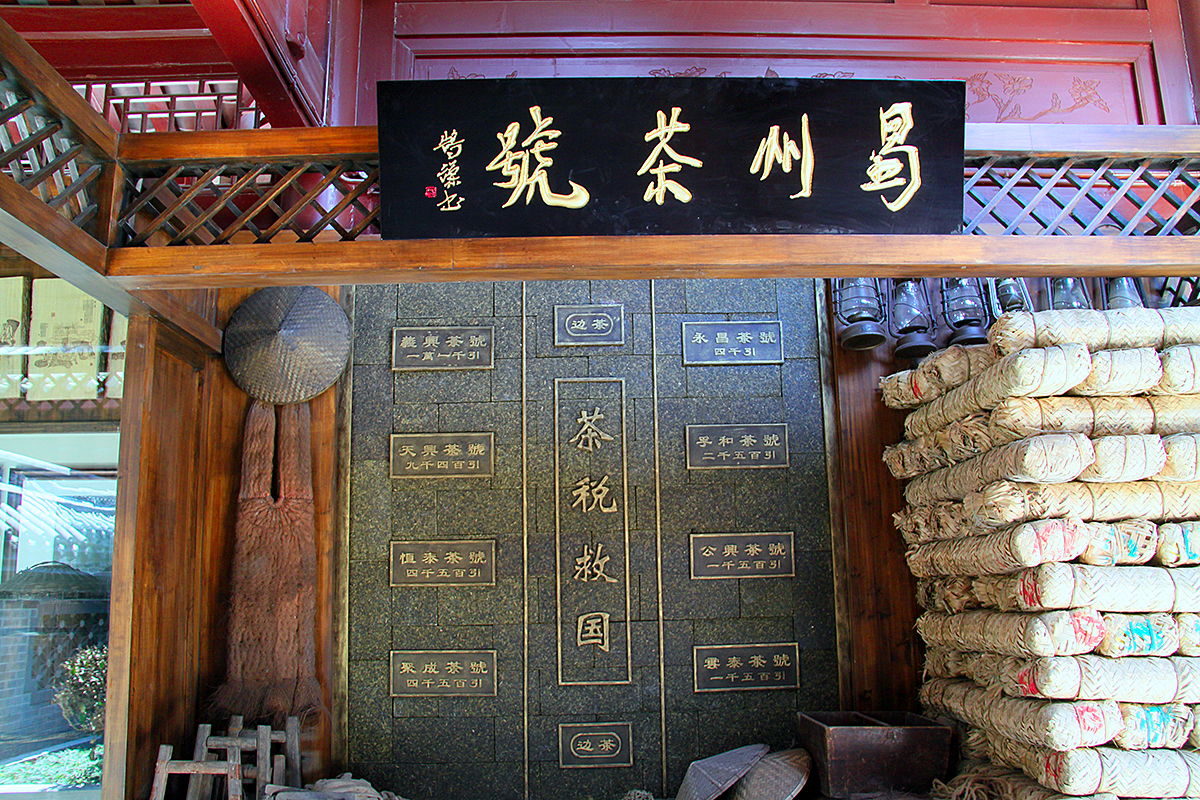 蜀州茶號
边茶
永昌茶號
四千引
孚和茶號
二千五百引
公興茶號
一千五百引
雲泰茶號
一千五百引
茶税救国
義興茶號
一萬一千引
天興茶號
九千四百引
恒泰茶號
四千五百引
聚成茶號
四千五百引
边茶